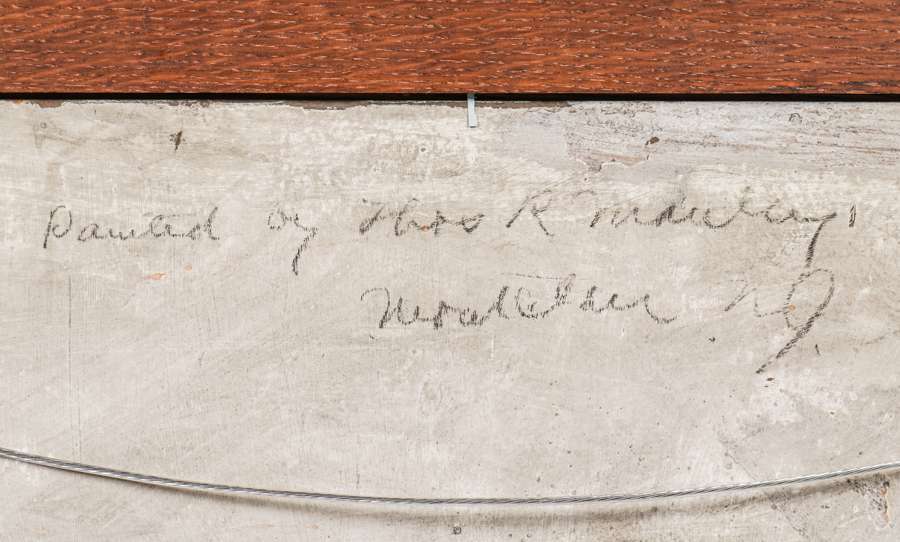 Painted by Thos R Manley
Montclair NJ